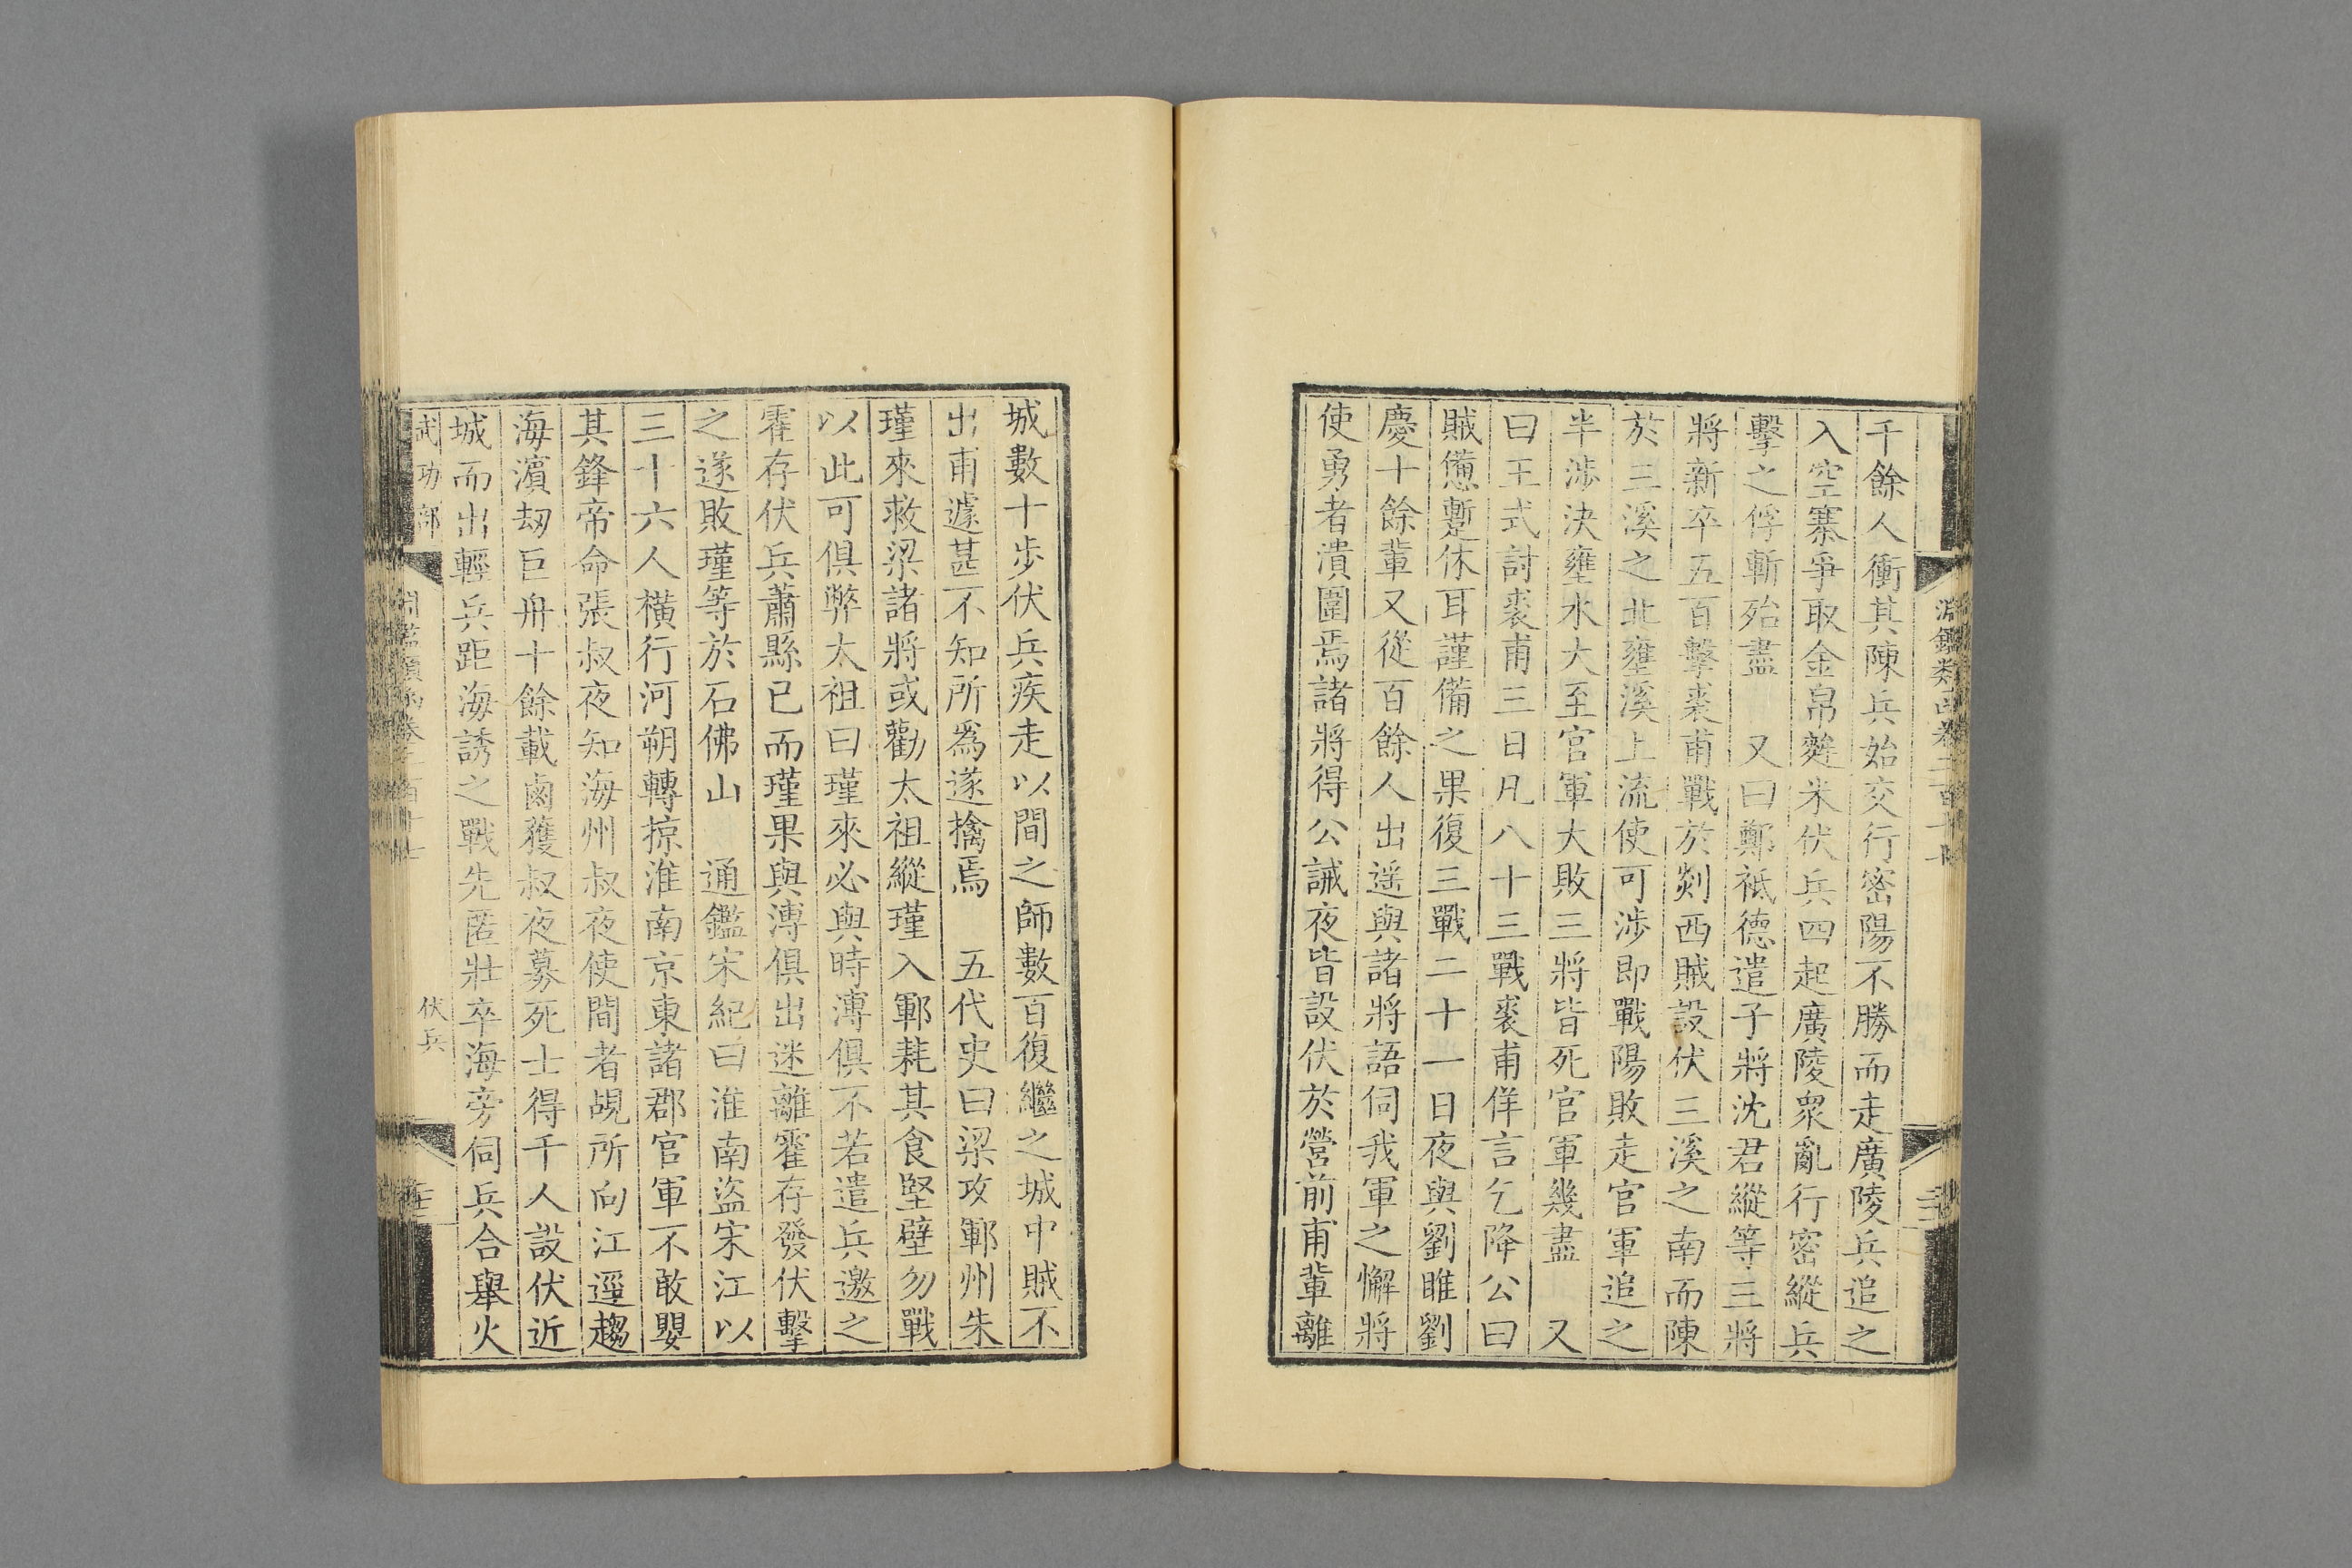 千餘人衝其陳兵始交行密陽不勝而走廣陵兵追之
入空寨爭取金帛麰米伏兵四起廣陵衆亂行密縱兵
擊之俘斬殆盡 又曰鄭祗德遣子將沈君縱等三將
將新卒五百擊裘甫戰於剡西賊設伏三溪之南而陳
於三溪之北壅溪上流使可涉即戰陽敗走官軍追之
半涉決壅水大至官軍大敗三將皆死官軍幾盡 又
曰王式討裘甫三日凡八十三戰裘甫佯言乞降公曰
賊憊慙蹔休耳謹備之果復三戰二十一日夜與劉睢劉
慶十餘輩又從百餘人出遥與諸將語伺我軍之懈將
使勇者潰圍焉諸將得公誡夜皆設伏於營前甫輩離
城數十步伏兵疾走以間之師數百復繼之城中賊不
出甫遽甚不知所爲遂擒焉 五代史曰梁攻鄆州朱
瑾來救梁諸將或勸太祖縱瑾入鄆耗其食堅壁勿戰
以此可俱弊太祖曰瑾來必與時溥俱不若遣兵邀之
霍存伏兵蕭縣已而瑾果與溥俱出迷離霍存發伏擊
之遂敗瑾等於石佛山 通鑑宋紀曰淮南盜宋江以
三十六人橫行河朔轉掠淮南京東諸郡官軍不敢嬰
其鋒帝命張叔夜知海州叔夜使間者覘所向江逕趨
海濵刼巨舟十餘載鹵獲叔夜募死士得千人設伏近
城而出輕兵距海誘之戰先匿壯卒海旁伺兵合舉火
武功部
伏兵